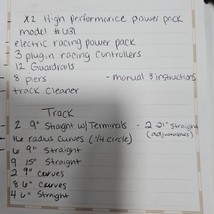 x2 High performance power pack
model # U31
electric racing power pack
3 plugin racing controllers
12 Guardrails
8 piers - manual & instructions
track cleaner
Track
2 9" Straight w/ Terminals - 2 -21" Straight
16 radius Curves (1/4 circle) (adjustables)
6 9" Straight
9 15" Straight
2 9" curves
8 6" Curves
4 6" Straight